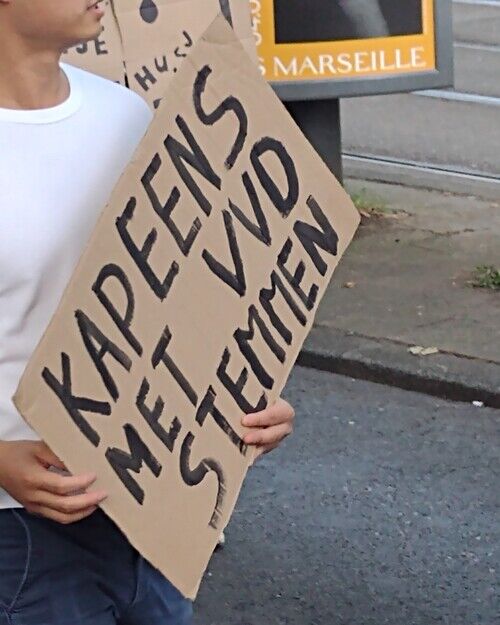 KAPEENS
MET VVD
STEMMEN
HUSJ
S MARSEILLE